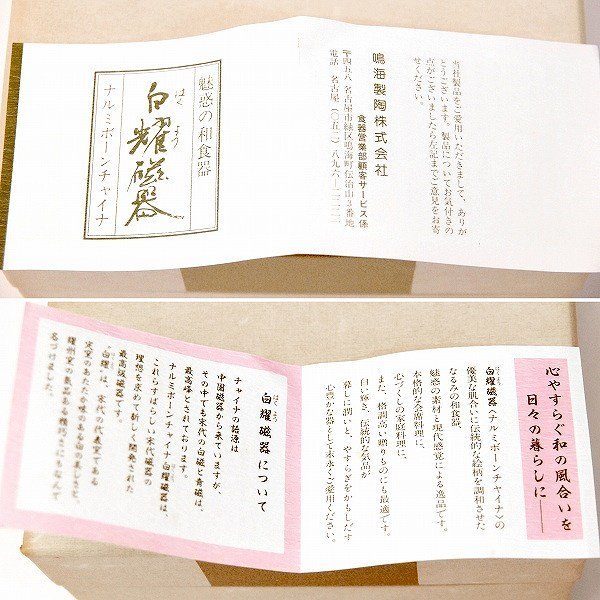 当社製品をご愛用いただきまして、ありが
とうございます。製品についてお気付きの
点がございましたら左記までご意見をお寄
せください。
鳴海製陶株式会社
食器営業部顧客サービス係
〒四五八 名古屋市緑区鳴海町伝治山3番地
電話 名古屋(〇五二)八九六―二二二二
魅惑の和食器
はく よう
白耀磁器
ナルミボーンチャイナ
心やすらぐ和の風合いを
日々の暮らしに――
白耀磁器〈ナルミボーンチャイナ〉の
優美な肌合いに伝統的な絵柄を調和させた
なるみの和食器。
魅惑の素材と現代感覚による逸品です。
本格的な会席料理に、
心づくしの家庭料理に、
また、格調高い贈りものにも最適です。
白い輝き、伝統的な気品が
暮しに潤いと、やすらぎをかもしだす
心豊かな器として末永くご愛用ください。
はくようじき
白耀磁器について
チャイナの語源は
中国磁器から来ていますが、
その中でも宋代の白磁と青磁は、
最高峰とされております。
これらすばらしい宋代磁器の
理想を求めて新しく開発された
ナルミボーンチャイナ白耀磁器は、
最高級磁器です。
"白耀"は、宋代の代表窯である
定窯のあたたか味のある白の美しさと、
耀州窯の気品ある精巧さにちなんで
名づけました。